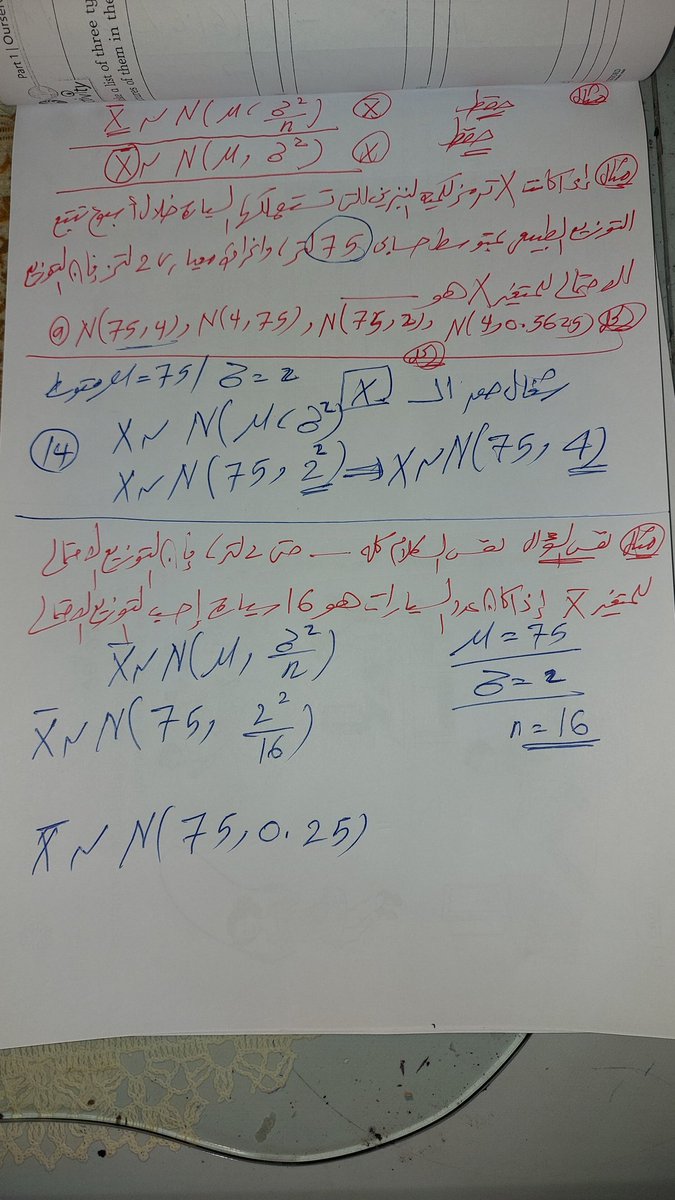 Part 1 | Ourselves
ke a list of three ty
res of them in the
X̄ ~ N(μ, σ²/n) (X̄) حفظ مثال
X̄ ~ N(μ, σ²) (X) حفظ
مثال إذا كانت X ترمز لكمية البنزين التي تستهلكها السيارة خلال أسبوع تتبع
التوزيع الطبيعي بمتوسط حسابي 75 لتر، وانحراف معياري 2 لتر فإن التوزيع
الاحتمالي للمتغير X هو ــــــــ
(a) N(75,4), N(4,75), N(75,2), N(4,0.5625)
μ=75 / σ=2
X ~ N(μ, σ²) X
(14) X ~ N(75, 2²) ⇒ X ~ N(75, 4)
مثال نفس السؤال نفس الكلام كله ... حتى 2 لتر، فإن التوزيع الاحتمالي
للمتغير X̄ إذا كان عدد السيارات هو 16 سيارة احسب التوزيع الاحتمالي
X̄ ~ N(μ, σ²/n) μ=75
σ=2
X̄ ~ N(75, 2²/16) n=16
X̄ ~ N(75, 0.25)